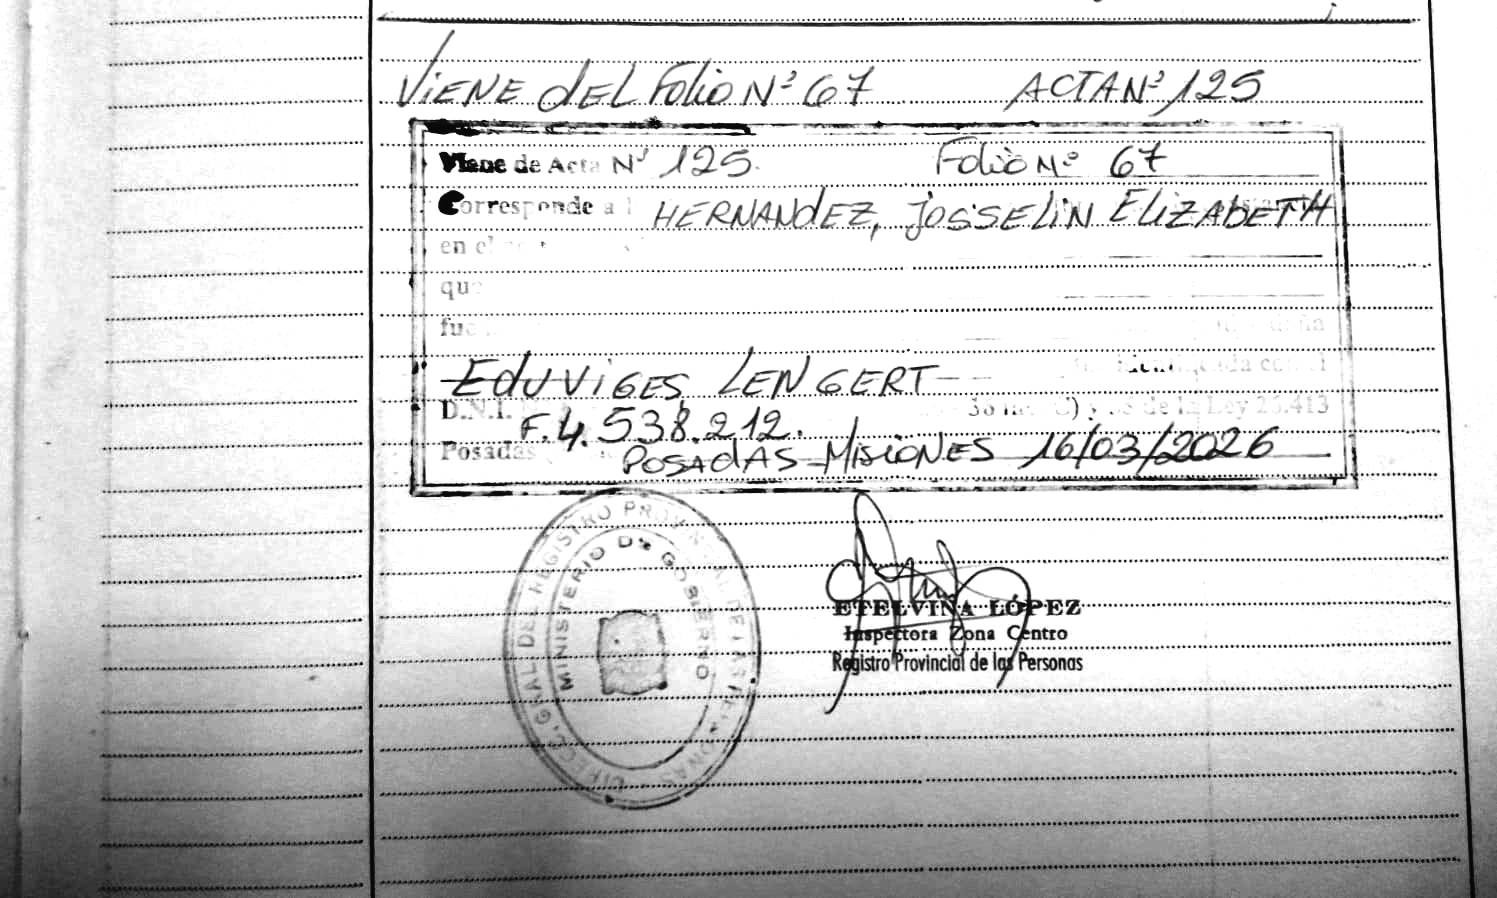 VIENE DEL FOLIO Nº 67 ACTA Nº 125
Viene de Acta Nº 125. FOLIO Nº 67
Corresponde a HERNANDEZ, JOSSELIN ELIZABETH
en el
que
fue
EDUVIGES LENGERT
D.N.I. de la Ley 26.413
F. 4.538.212.
Posadas POSADAS MISIONES 16/03/2026
DIRECC. GRAL. DEL REGISTRO PROVINCIAL DE LAS PERSONAS
MINISTERIO DE GOBIERNO
ETELVINA LÓPEZ
Inspectora Zona Centro
Registro Provincial de las Personas